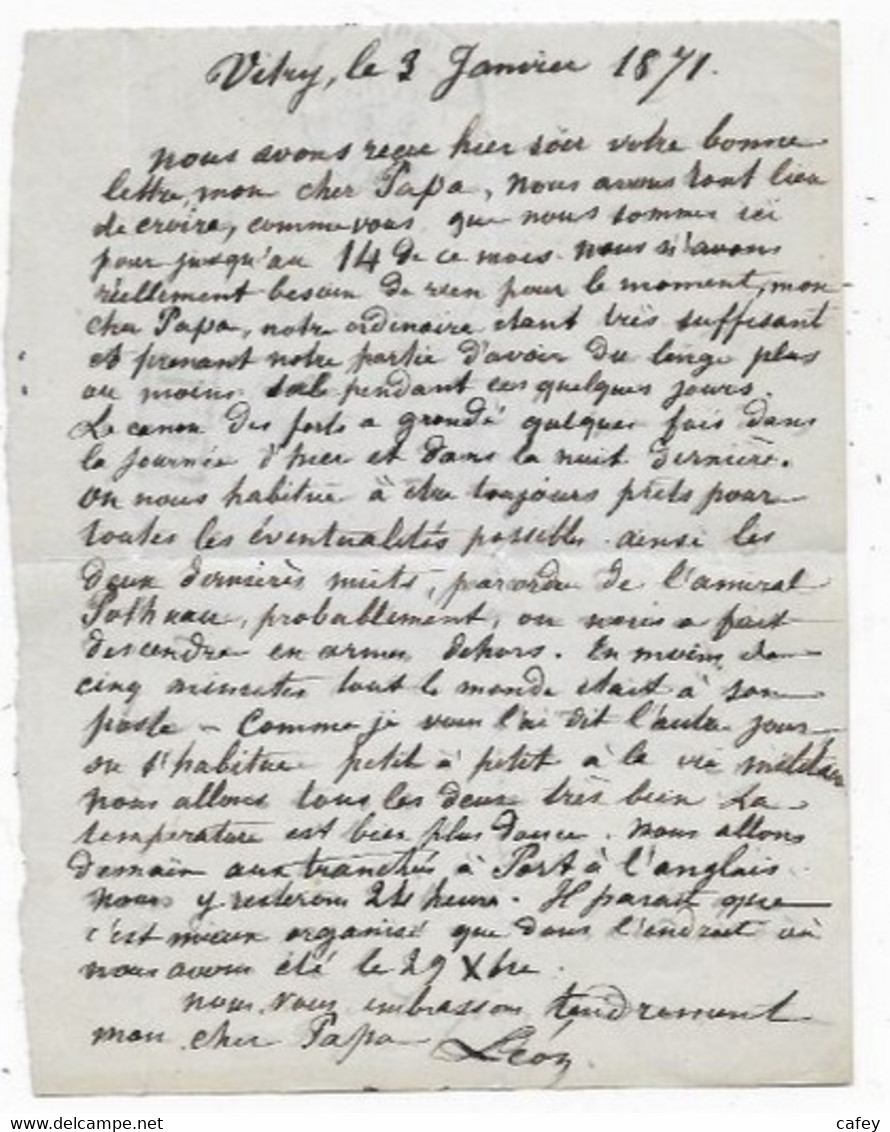 Vitry, le 3 Janvier 1871.
nous avons reçu hier soir votre bonne
lettre, mon cher Papa, nous avons tout lieu
de croire, comme vous que nous sommes ici
pour jusqu'au 14 de ce mois. nous n'avons
réellement besoin de rien pour le moment, mon
cher Papa, notre ordinaire étant très suffisant
et prenant notre partie d'avoir du linge plus
ou moins sale pendant ces quelques jours.
Le canon des forts a grondé quelques fois dans
la journée d'hier et dans la nuit dernière.
on nous habitue à être toujours prêts pour
toutes les éventualités possibles. ainsi les
deux dernières nuits, par ordre de l'amiral
Pothuau, probablement, on nous a fait
descendre en armes dehors. En moins de
cinq minutes tout le monde était à son
poste - Comme je vous l'ai dit l'autre jour
on s'habitue petit à petit à la vie militaire
nous allons tous les deux très bien La
température est bien plus douce. nous allons
demain aux tranchés à Port à l'anglais.
nous y resterons 24 heures. Il parait que
c'est mieux organisé que dans l'endroit où
nous avons été le 29 Xbre.
nous vous embrassons tendrement
mon cher Papa
Léon
cafey